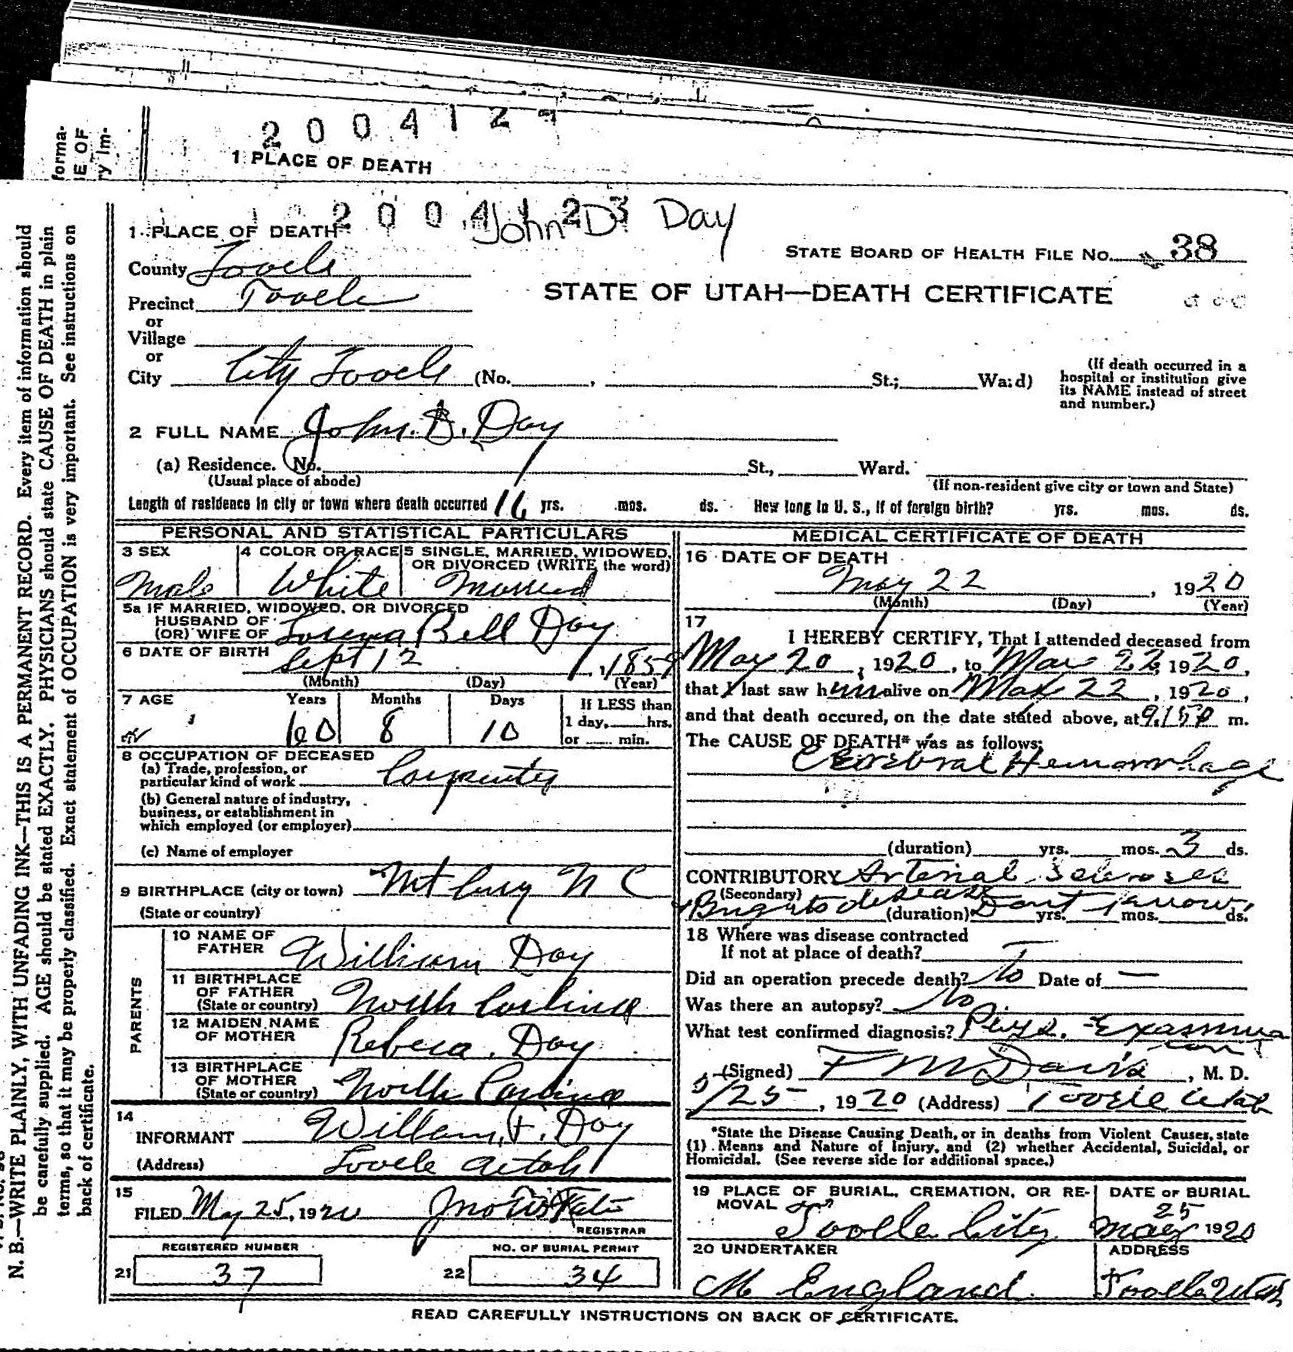 forma-
E OF
ry im-
2 0 0 4 1 2 4
1 PLACE OF DEATH
N. B.—WRITE PLAINLY, WITH UNFADING INK—THIS IS A PERMANENT RECORD. Every item of information should
be carefully supplied. AGE should be stated EXACTLY. PHYSICIANS should state CAUSE OF DEATH in plain
terms, so that it may be properly classified. Exact statement of OCCUPATION is very important. See instructions on
back of certificate.
2 0 0 4 1 2 3
John D Day
1 PLACE OF DEATH
STATE BOARD OF HEALTH FILE No. 38
County Tooele
STATE OF UTAH—DEATH CERTIFICATE
Precinct Tooele
or
Village
or
City City Tooele (No. , St.; Ward)
(If death occurred in a
hospital or institution give
its NAME instead of street
and number.)
2 FULL NAME John. D. Day
(a) Residence. No. St., Ward.
(Usual place of abode) (If non-resident give city or town and State)
Length of residence in city or town where death occurred 16 yrs. mos. ds. How long in U. S., if of foreign birth? yrs. mos. ds.
PERSONAL AND STATISTICAL PARTICULARS
3 SEX 4 COLOR OR RACE 5 SINGLE, MARRIED, WIDOWED,
OR DIVORCED (WRITE the word)
Male White Married
5a IF MARRIED, WIDOWED, OR DIVORCED
HUSBAND OF
(OR) WIFE OF Bell Day
6 DATE OF BIRTH Sept 12, 1859
(Month) (Day) (Year)
7 AGE Years Months Days If LESS than
1 day, hrs.
or min.
60 8 10
8 OCCUPATION OF DECEASED
(a) Trade, profession, or
particular kind of work Carpenter
(b) General nature of industry,
business, or establishment in
which employed (or employer)
(c) Name of employer
9 BIRTHPLACE (city or town) N C
(State or country)
PARENTS
10 NAME OF
FATHER William Day
11 BIRTHPLACE
OF FATHER
(State or country) North Carlina
12 MAIDEN NAME
OF MOTHER Rebeca. Day
13 BIRTHPLACE
OF MOTHER
(State or country) North Carlina
14
INFORMANT William, F. Day
(Address) Tooele Utah
15
FILED May 25, 1920
REGISTRAR
REGISTERED NUMBER NO. OF BURIAL PERMIT
21 37 22 34
MEDICAL CERTIFICATE OF DEATH
16 DATE OF DEATH
May 22, 1920
(Month) (Day) (Year)
17
I HEREBY CERTIFY, That I attended deceased from
May 20, 1920, to May 22, 1920,
that I last saw him alive on May 22, 1920,
and that death occured, on the date stated above, at 9.15P m.
The CAUSE OF DEATH* was as follows:
Cerebral Hemorrhage
(duration) yrs. mos. 3 ds.
CONTRIBUTORY Arterial Scleroses
(Secondary)
Brights disease (duration) Dont know yrs. mos. ds.
18 Where was disease contracted
If not at place of death?
Did an operation precede death? No Date of —
Was there an autopsy? No
What test confirmed diagnosis? Phys. Examina
tion
(Signed) F M Davis, M. D.
5/25, 1920 (Address) Tooele Utah
*State the Disease Causing Death, or in deaths from Violent Causes, state
(1) Means and Nature of Injury, and (2) whether Accidental, Suicidal, or
Homicidal. (See reverse side for additional space.)
19 PLACE OF BURIAL, CREMATION, OR RE-
MOVAL
Tooele City
DATE OF BURIAL
25
May 1920
20 UNDERTAKER ADDRESS
M England Tooele Utah
READ CAREFULLY INSTRUCTIONS ON BACK OF CERTIFICATE.